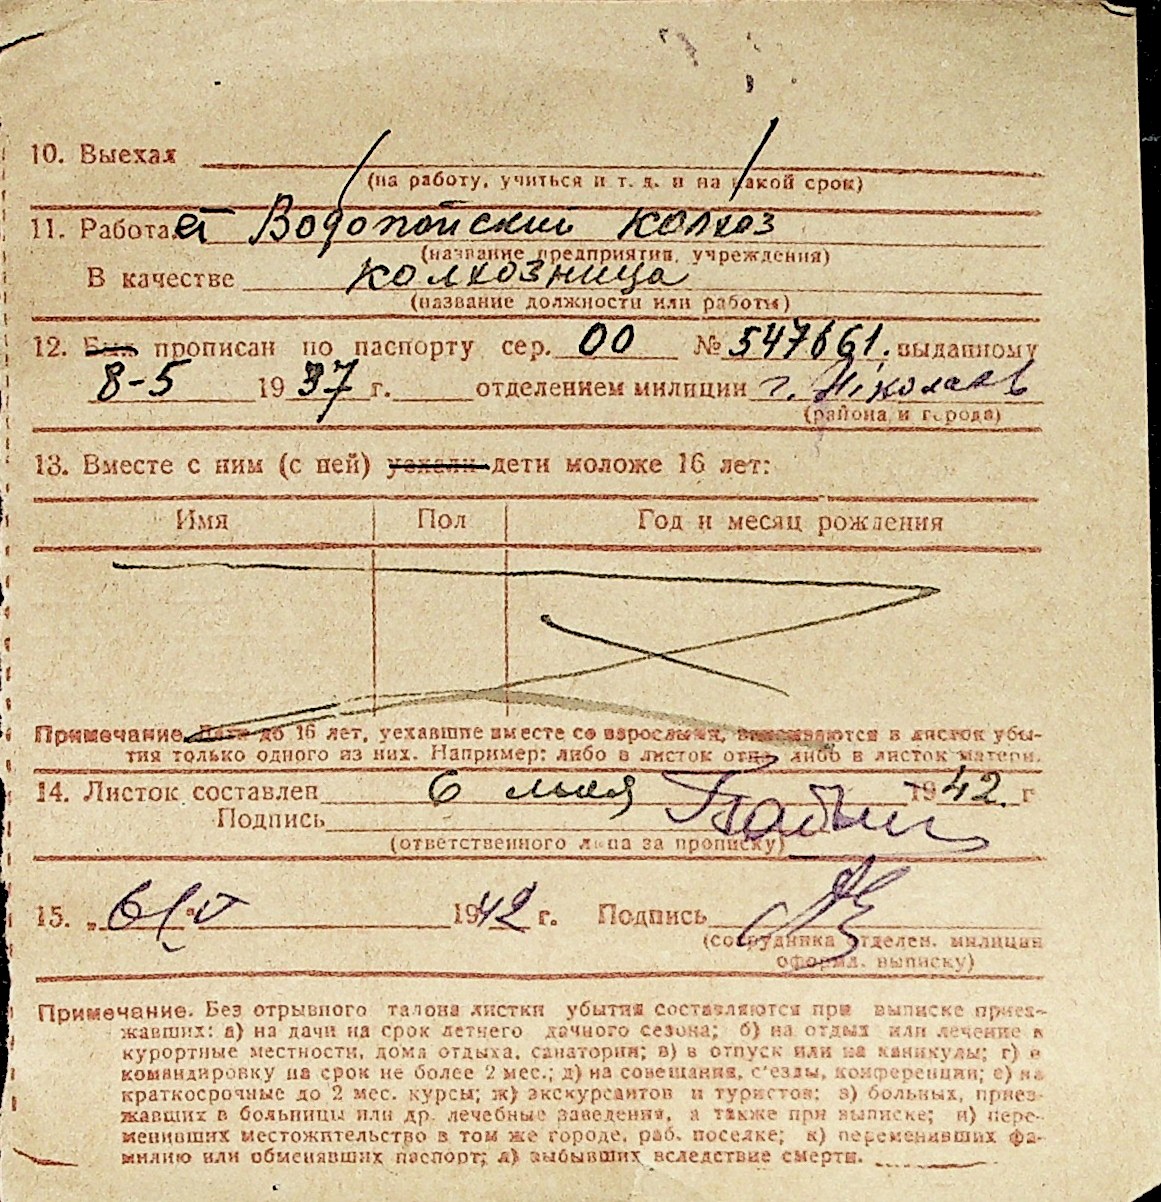 10. Выехал
(на работу, учиться и т. д. и на какой срок)
11. Работает Водопойский колхоз
(название предприятия, учреждения)
В качестве колхозница
(название должности или работы)
12. Был прописан по паспорту сер. 00 № 547661. выданному
8-5 1937 г. отделением милиции г. Николаев
(района и города)
13. Вместе с ним (с ней) уехали дети моложе 16 лет:
Имя Пол Год и месяц рождения
Примечание. Дети до 16 лет, уехавшие вместе со взрослыми, вписываются в листок убы-
тия только одного из них. Например: либо в листок отца либо в листок матери.
14. Листок составлен 6 мая 1942 г
Подпись
(ответственного лица за прописку)
15. „6/V" 1942 г. Подпись
(сотрудника отделен. милиции
оформл. выписку)
Примечание. Без отрывного талона листки убытия составляются при выписке приез-
жавших: а) на дачи на срок летнего дачного сезона; б) на отдых или лечение в
курортные местности, дома отдыха, санатории; в) в отпуск или на каникулы; г) в
командировку на срок не более 2 мес.; д) на совещания, с'езды, конференции; е) на
краткосрочные до 2 мес. курсы; ж) экскурсантов и туристов; з) больных, приез-
жавших в больницы или др. лечебные заведения, а также при выписке; и) пере-
менивших местожительство в том же городе, раб. поселке; к) переменивших фа-
милию или обменявших паспорт; л) выбывших вследствие смерти.